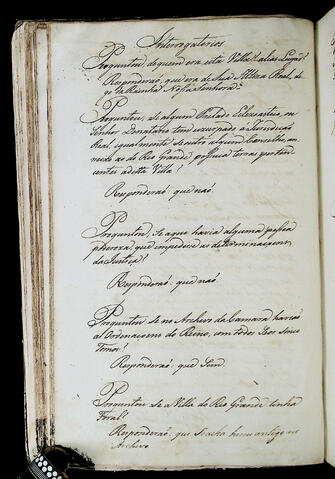 Interrogatorios
Perguntou, de quem era esta Villa? alias Lugar?
Responderaõ, que era de Sua Alteza Real, de
Rainha Nossa Senhora.
Perguntou, se algum Prelado Eclesiastico, ou
Senhor Donatario tem uzurpado a Jurisdiçaõ
Real, igualmente se outro algum Concelho,
ao do Rio Grande possuia terras perten
centes a desta Villa?
Responderaõ: que naõ.
Perguntou, se aqui havia alguma pessoa
que impedisse as determinaçoens
da Justiça?
Responderaõ: que naõ
Perguntou se no Archivo da Camara havia
as Ordenaçoens do Reino, com todos seos sinco
Tomos?
Responderaõ: que Sim.
Perguntou se a Villa do Rio Grande tinha
Foral?
Responderaõ: que se acha hum antigo no
Archivo